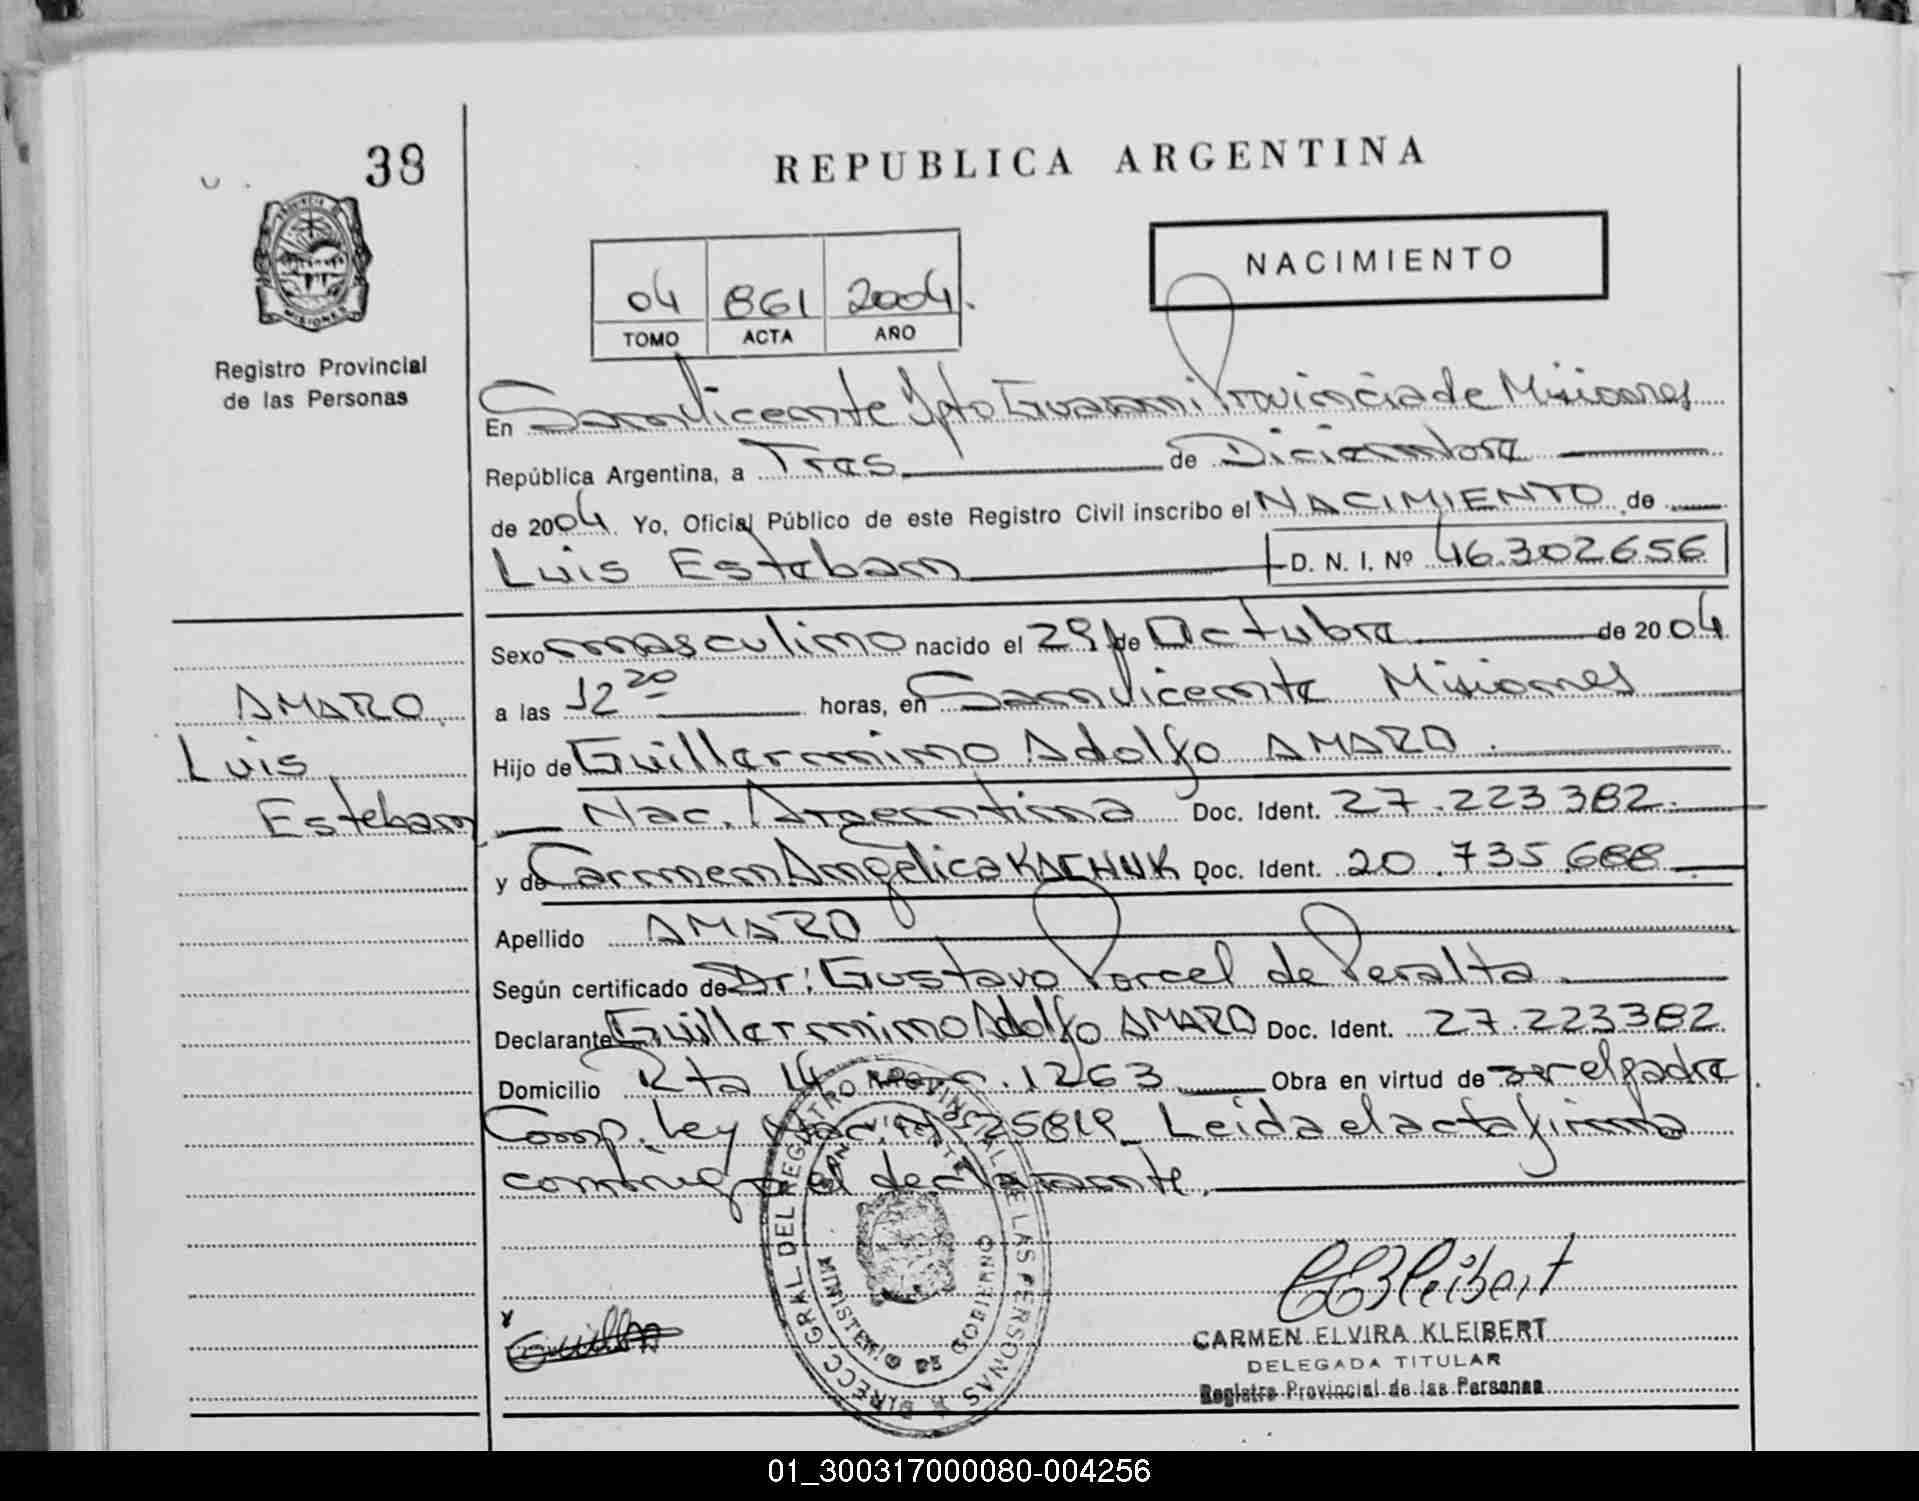 38
REPUBLICA ARGENTINA
NACIMIENTO
PROVINCIA DE
MISIONES
04 861 2004.
TOMO ACTA AÑO
Registro Provincial
de las Personas
En San Vicente Dpto Guarani Provincia de Misiones
República Argentina, a Tres de Diciembre
de 2004. Yo, Oficial Público de este Registro Civil inscribo el NACIMIENTO de
Luis Esteban D. N. I. Nº 46.302656
Sexo masculino nacido el 29 de Octubre de 2004
AMARO
a las 12 20 horas, en San Vicente Misiones
Luis
Hijo de Guillermino Adolfo AMARO
Esteban
Nac. Argentina Doc. Ident. 27.223382.
y de Carmen Angelica KACHUK Doc. Ident. 20.735.688
Apellido AMARO
Según certificado de Dr: Gustavo Porcel de Peralta.
Declarante Guillermino Adolfo AMARO Doc. Ident. 27.223382
Domicilio Rta 14 1263 Obra en virtud de ser el padre
Comp. Ley Nac. Nº 25819_ Leida el acta firma
conmigo el declarante.
DIRECC. GRAL. DEL REGISTRO PROVINCIAL DE LAS PERSONAS
SAN VICENTE
MINISTERIO DE GOBIERNO
CEKleibert
x Guiller
CARMEN ELVIRA KLEIBERT
DELEGADA TITULAR
Registro Provincial de las Personas
01_300317000080-004256